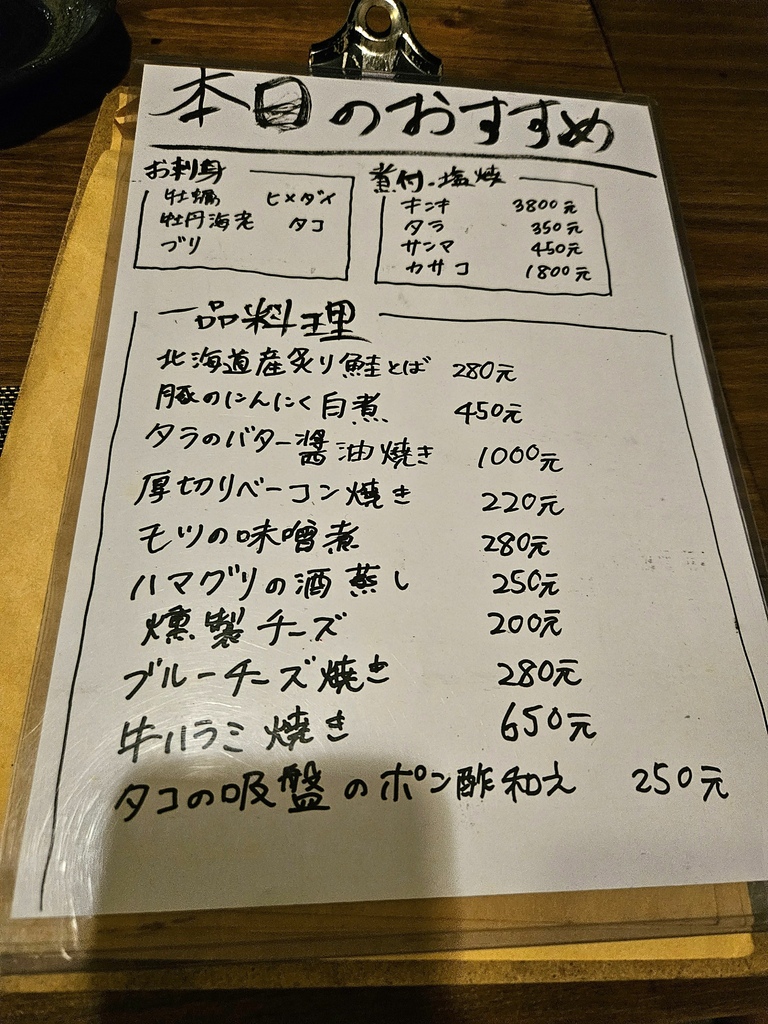 本日のおすすめ
お刺身
牡蠣 ヒメダイ
牡丹海老 タコ
ブリ
煮付・塩焼
キンキ 3800元
タラ 350元
サンマ 450元
カサゴ 1800元
一品料理
北海道産炙り鮭とば 280元
豚のにんにく白煮 450元
タラのバター醤油焼き 1000元
厚切りベーコン焼き 220元
モツの味噌煮 280元
ハマグリの酒蒸し 250元
燻製チーズ 200元
ブルーチーズ焼き 280元
牛ハラミ焼き 650元
タコの吸盤のポン酢和え 250元